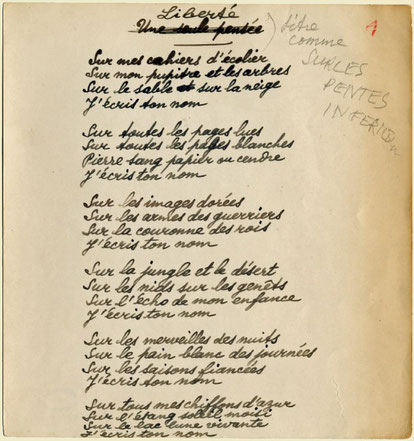 Liberté
Une seule pensée
titre
comme
SUR LES
PENTES
INFERIEU
1
Sur mes cahiers d'écolier
Sur mon pupitre et les arbres
Sur le sable et sur la neige
J'écris ton nom
Sur toutes les pages lues
Sur toutes les pages blanches
Pierre sang papier ou cendre
J'écris ton nom
Sur les images dorées
Sur les armes des guerriers
Sur la couronne des rois
J'écris ton nom
Sur la jungle et le désert
Sur les nids sur les genêts
Sur l'écho de mon enfance
J'écris ton nom
Sur les merveilles des nuits
Sur le pain blanc des journées
Sur les saisons fiancées
J'écris ton nom
Sur tous mes chiffons d'azur
Sur l'étang soleil moisi
Sur le lac lune vivante
J'écris ton nom